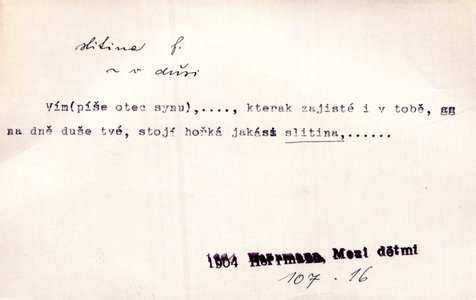 slitina f.
~ v duši
Vím(píše otec synu),...., kterak zajisté i v tobě, gg
na dně duše tvé, stojí hořká jakási slitina,......
1904 Herrmann, Mezi dětmi
107 . 16